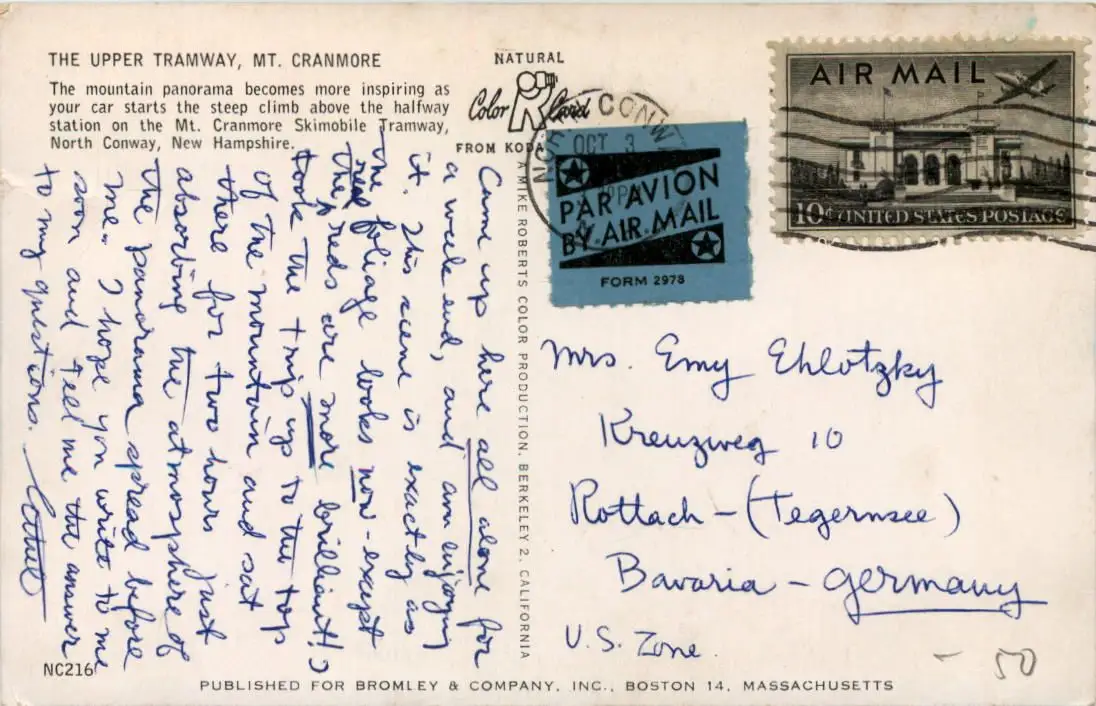 THE UPPER TRAMWAY, MT. CRANMORE
The mountain panorama becomes more inspiring as
your car starts the steep climb above the halfway
station on the Mt. Cranmore Skimobile Tramway,
North Conway, New Hampshire.
NATURAL
Color R Card
FROM KODA
OCT 3
AIR MAIL
10¢ UNITED STATES POSTAGE
PAR AVION
BY AIR MAIL
FORM 2978
Came up here all alone for
a week end, and am enjoying
it. This scene is exactly as
the foliage looks now - except
the real reds are more brilliant! I
took the trip up to the top
of the mountain and sat
there for two hours just
absorbing the atmosphere of
the panorama spread before
me. I hope you write to me
soon and tell me the answer
to my questions.
A MIKE ROBERTS COLOR PRODUCTION, BERKELEY 2, CALIFORNIA
Mrs. Emy Ehlotzky
Kreuzweg 10
Rottach - (Tegernsee)
Bavaria - Germany
U.S. Zone
- 50
NC216
PUBLISHED FOR BROMLEY & COMPANY, INC., BOSTON 14, MASSACHUSETTS